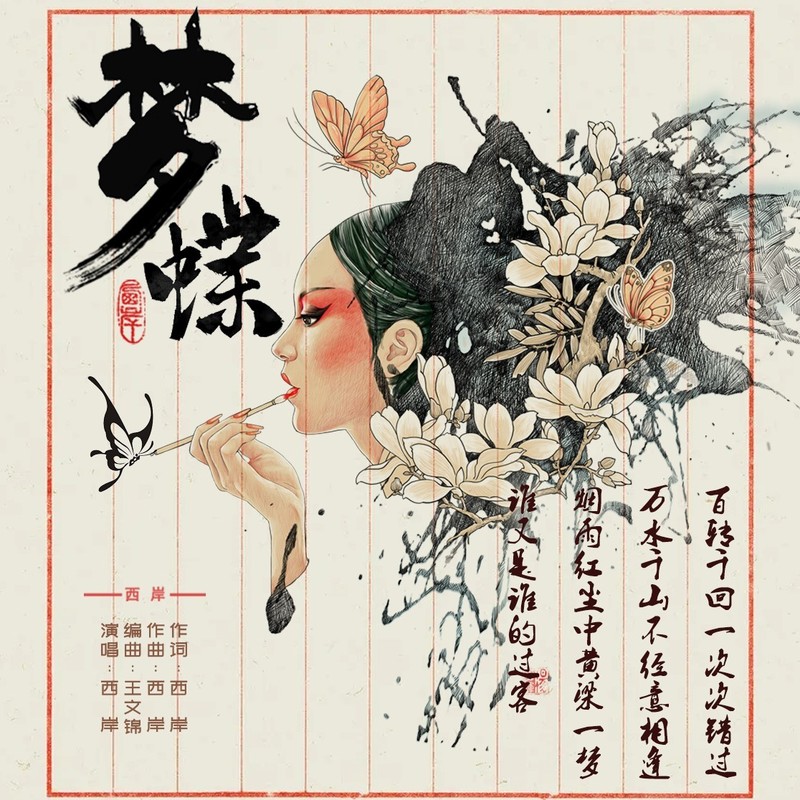 梦
蝶
西岸
作词：西岸
作曲：西岸
编曲：王文锦
演唱：西岸
百转千回一次次错过
万水千山不经意相逢
烟雨红尘中黄梁一梦
谁又是谁的过客